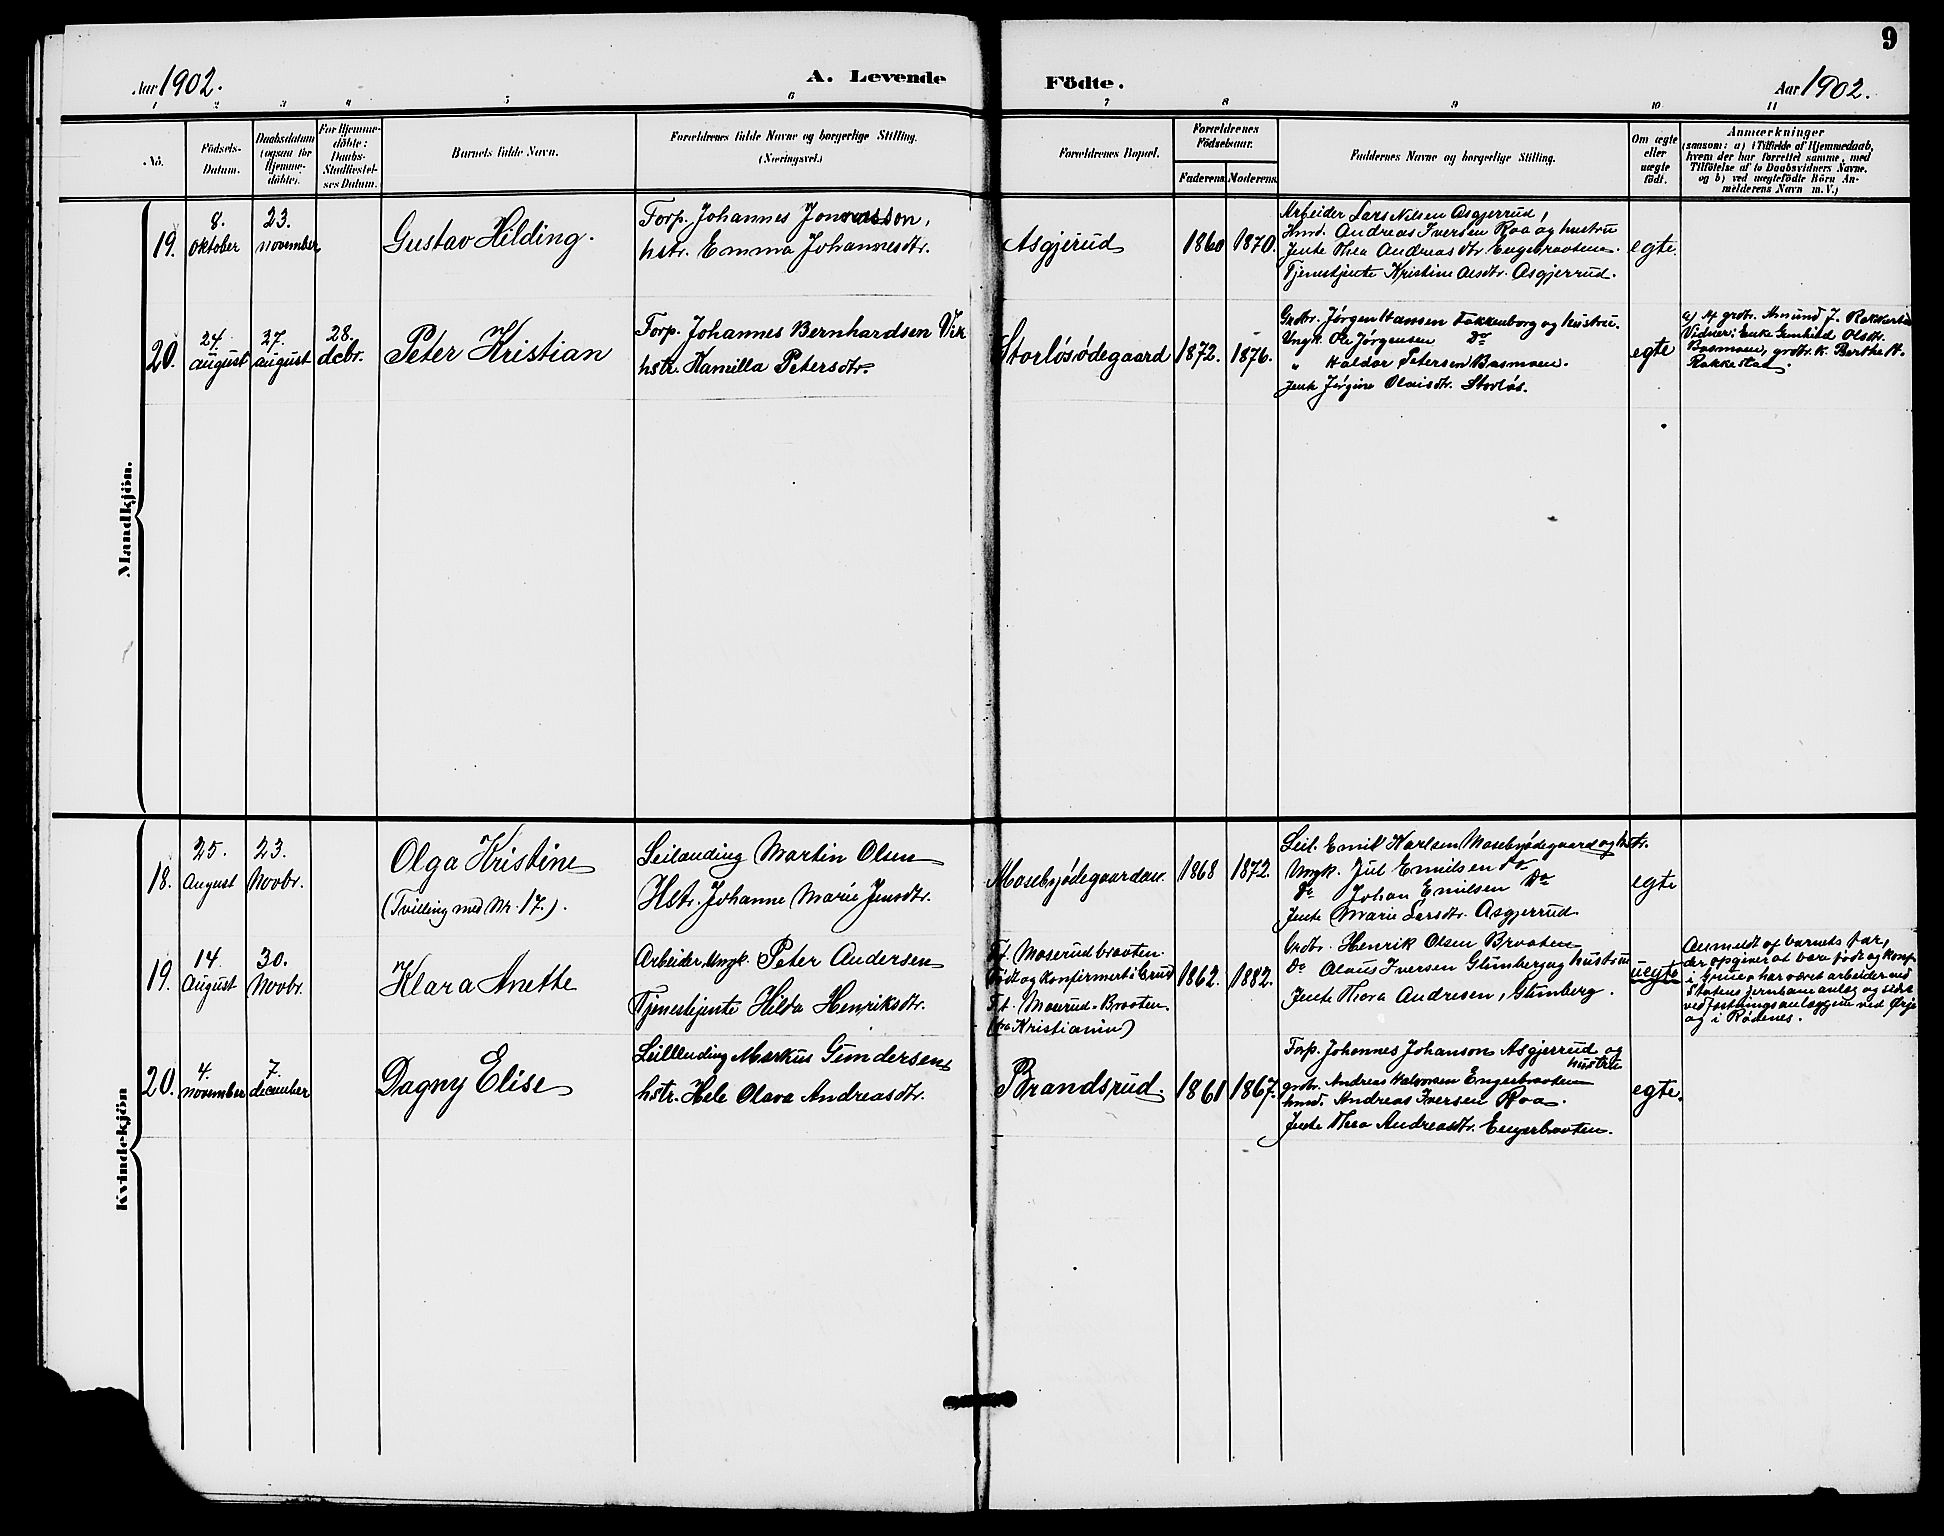 9
Aar 1902.
A. Levende Födte.
Aar 1902.
1 2 3 4 5 6 7 8 9 10 11
No.
Födsels-
Datum.
Daabsdatum
(ogsaa for
Hjemme-
döbte).
For Hjemme-
döbte:
Daabs-
Stadfæstel-
ses Datum.
Barnets fulde Navn.
Forældrenes fulde Navne og borgerlige Stilling.
(Næringsvei.)
Forældrenes Bopæl.
Forældrenes
Födselsaar.
Faderens.
Moderens.
Faddernes Navne og borgerlige Stilling.
Om ægte
eller
uægte
födt.
Anmærkninger
(saasom: a) i Tilfælde af Hjemmedaab,
hvem der har forrettet samme, med
Tilföielse af to Daabsvidners Navne.
og b) ved uægtefödte Börn An-
melderens Navn m. V.)
Mandkjön.
19.
8.
oktober
23.
november
Gustav Hilding.
Forp. Johannes Jonasson,
hstr. Emma Johannesdtr.
Asgjerud
1860
1870.
Arbeider Lars Nilsen Asgjerrud,
Hmd. Andreas Iversen Roa og hustru
Jente Thea Andreasdtr. Engebraatene.
Tjenestjente Kristine Olsdtr. Asgjerrud.
egte.
20.
24.
august
27.
august
28.
debr.
Peter Kristian
Forp. Johannes Bernhardsen Vik
hstr. Kamilla Petersdtr.
Storløsødegaard
1872.
1876.
Grdbr. Jørgen Hansen Fokkenborg og hustru.
Ungk. Ole Jørgensen Do
" Haldor Petersen Basmoen.
Jente Jørgine Olaisdtr. Storløs.
egte
a) af grdbr. Amund J. Rakkestad
Vidner: Enke Gunhild Olsdtr.
Basmoen, grdbr. k. Berthe H.
Rakkestad.
Kvindekjön
18.
25.
August
23.
Novbr.
Olga Kristine
(Tvilling med Nr. 17.).
Leilænding Martin Olsen
Hstr. Johanne Marie Jensdtr.
Mosebyødegaarden.
1868
1872.
Leil. Emil Karlsen Mosebyødegaard og hstr.
Ungk. Jul Emilsen Do
Do Johan Emilsen Do
Jente Marie Larsdtr. Asgjerrud
egte
19.
14.
August
30.
Novbr.
Klara Anette
Arbeider, Ungk. Peter Andersen
Tjenestejente Hilda Henriksdtr.
F. t. Moserud braaten.
Født og konfirmert i Grue
F. t. Moserud-Braaten.
(fra Kristiania)
1862.
1882.
Grdbr. Henrik Olsen Braaten
Do Olaus Iversen Glimberg og hustru
Jente Thora Andresen, Glimberg.
uegte
Anmeldt af barnets far,
der opgiver at være født og konf.
i Grue, har været arbeider ved
Statens jernbaneanlæg og sidst
ved fæstningsanlæggene ved Ørje
og i Rødenes.
20.
4.
november
7.
december
Dagny Elise
Leillending Markus Gundersen
hstr. Hele Olava Andreasdtr.
Brandsrud.
1861
1867.
Forp. Johannes Johanson Asgjerrud og
hustru
grdbr. Andreas Halvorsen Engebraaten
hmd. Andreas Iversen Roa.
Jente Thea Andreasdtr. Engerbraaten.
egte.